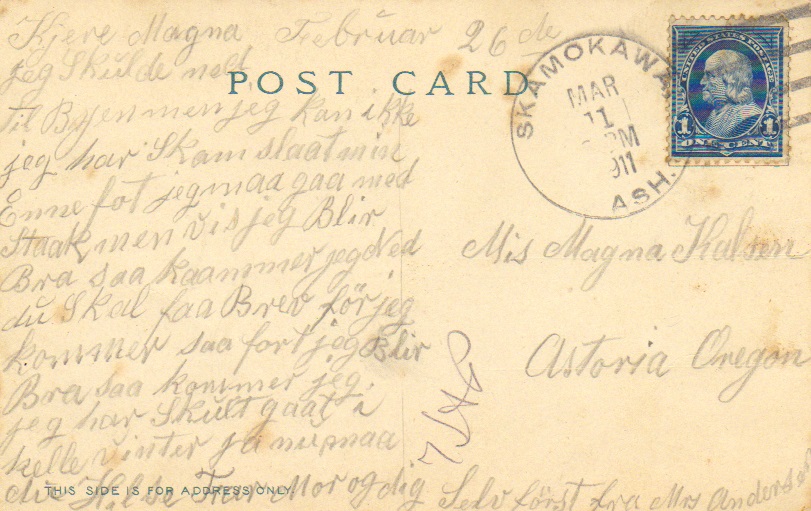 Kjere Magna Februar 26 de
jeg Skulde ned
POST CARD
til Byen men jeg kan ikke
jeg har Skam slaat min
Enne fot jeg maa gaa med
Staak men vis jeg Blir
Bra saa kaammer jeg Ned
du Skal faa Brev før jeg
kommer saa fort jeg Blir
Bra saa kommer jeg.
jeg har Skult gaat i
helle vinter ja nu maa
du Hilse Far Mor og dig Selv først fra Mrs Anderson
THIS SIDE IS FOR ADDRESS ONLY.
SKAMOKAWA
MAR
11
PM
1911
ASH.
UNITED STATES POSTAGE
1 ONE CENT 1
Mis Magna Kalsen
Astoria Oregon